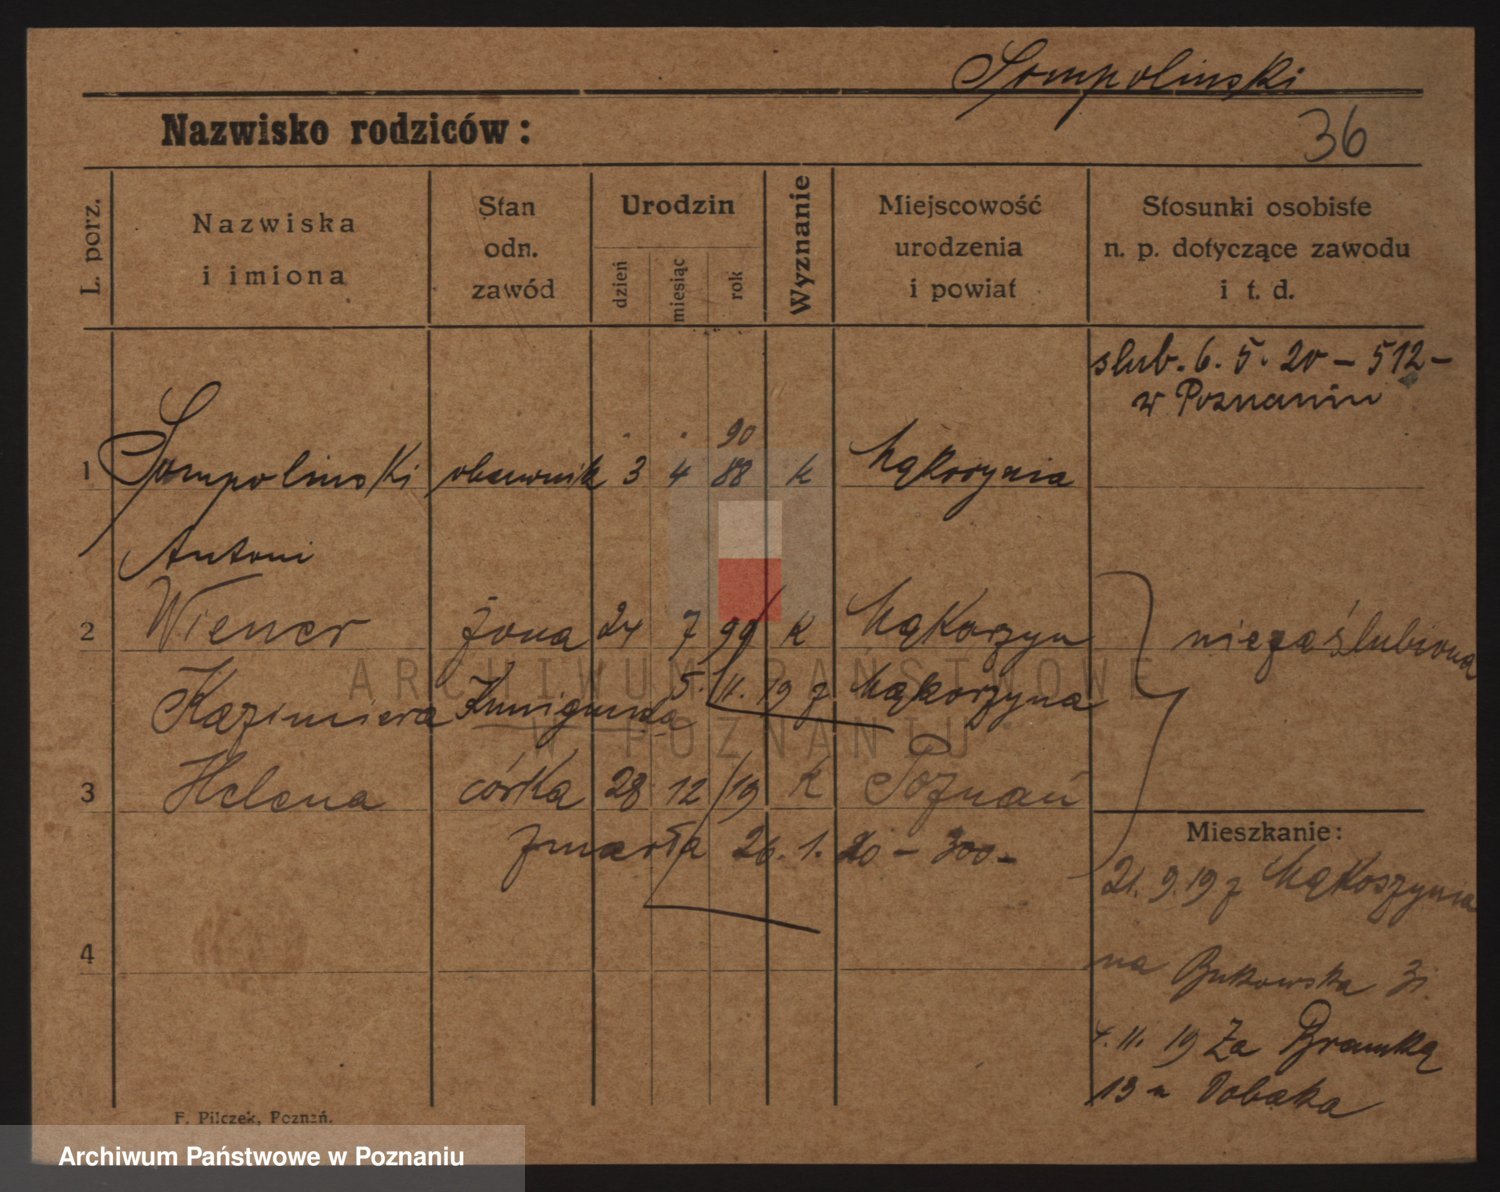 Sompolinski
Nazwisko rodziców:
36
L. porz.
Nazwiska
i imiona
Stan
odn.
zawód
Urodzin
dzień
miesiąc
rok
Wyznanie
Miejscowość
urodzenia
i powiat
Stosunki osobiste
n. p. dotyczące zawodu
i t. d.
slub. 6. 5. 20 – 512 –
w Poznaniu
90
1 Sompolinski 3 4 88 k
Antoni
2 Wiener żona 24 7 99 k Mąkorzyn niezaślubiona
Kazimiera Kunigunda 5. 11. 19 z Mąkorzyna
3 Helena córka 28 12 19 k Poznań
zmarła 26. 1. 20 – 300 –
Mieszkanie:
21. 9. 19 z Mąkoszyna
na Bukowska
4. 11. 19 Za Bramką
13 u
4
F. Pilczek, Poznań.
ARCHIWUM PAŃSTWOWE
W POZNANIU
Archiwum Państwowe w Poznaniu